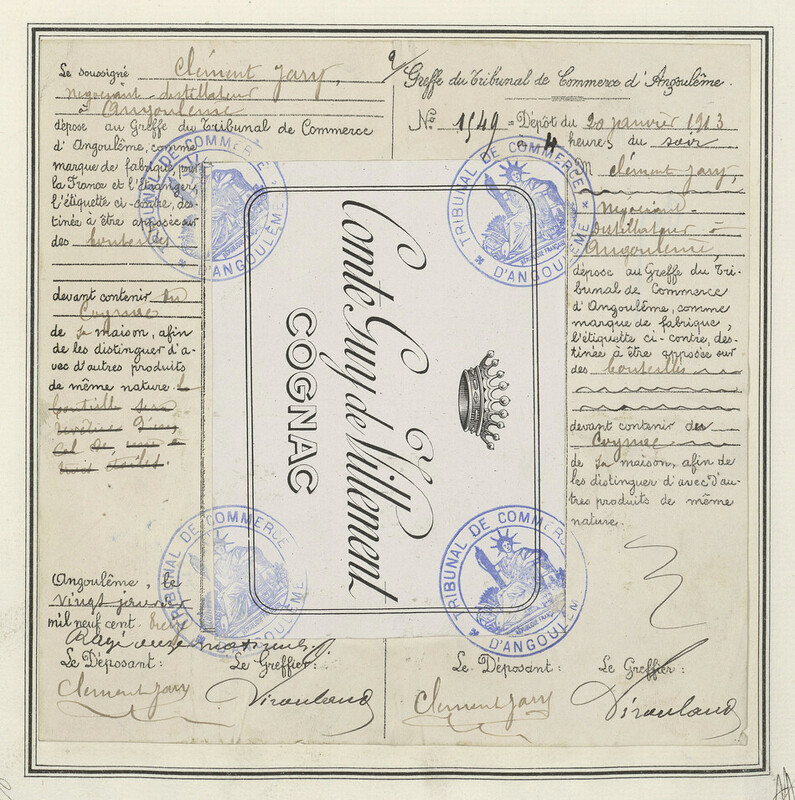 Le soussigné Clément Jary,
négociant-distillateur
à Angoulême
dépose au Greffe du Tribunal de Commerce
d'Angoulême, comme
marque de fabrique, pour
la France et l'Étranger,
l'étiquette ci-contre, des-
tinée à être apposée sur
des bouteilles
devant contenir du
Cognac
de sa maison, afin
de les distinguer d'a-
vec d'autres produits
de même nature. la
bouteille sera
revêtue d'un
col de
huit étoiles.
Angoulême, le
vingt janvier
mil neuf cent treize
Rayé onze mots nuls
Le Déposant: Le Greffier:
Clément Jary
Comte Guy de Villement
COGNAC
TRIBUNAL DE COMMERCE
D'ANGOULÊME
TRIBUNAL DE COMMERCE
D'ANGOULÊME
TRIBUNAL DE COMMERCE
D'ANGOULÊME
TRIBUNAL DE COMMERCE
D'ANGOULÊME
Greffe du Tribunal de Commerce d'Angoulême.
No. 1549 = Dépôt du 20 janvier 1913
à 4 heures du soir
M Clément Jary,
Négociant-
distillateur à
Angoulême,
dépose au Greffe du Tri-
bunal de Commerce
d'Angoulême, comme
marque de fabrique,
l'étiquette ci-contre, des-
tinée à être apposée sur
des bouteilles
devant contenir des
Cognac
de sa maison, afin de
les distinguer d'avec d'au-
tres produits de même
nature.
Le Déposant: Le Greffier:
Clément Jary